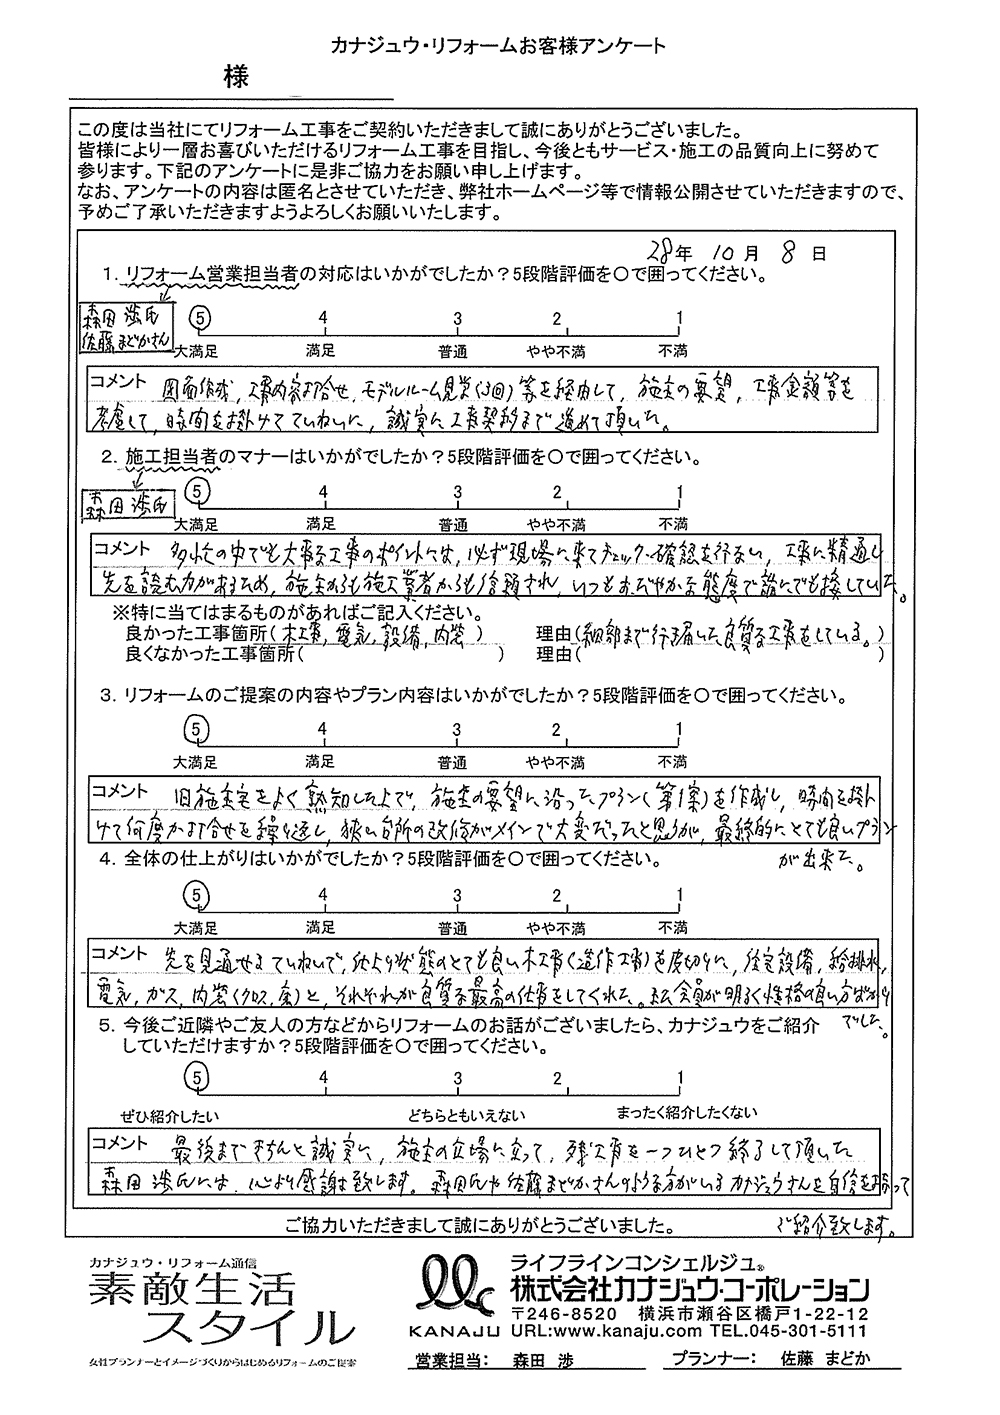 カナジュウ・リフォームお客様アンケート
様
この度は当社にてリフォーム工事をご契約いただきまして誠にありがとうございました。
皆様により一層お喜びいただけるリフォーム工事を目指し、今後ともサービス・施工の品質向上に努めて
参ります。下記のアンケートに是非ご協力をお願い申し上げます。
なお、アンケートの内容は匿名とさせていただき、弊社ホームページ等で情報公開させていただきますので、
予めご了承いただきますようよろしくお願いいたします。
28年 10月 8日
1. リフォーム営業担当者の対応はいかがでしたか？5段階評価を〇で囲ってください。
森田 渉氏
佐藤 まどかさん
5 4 3 2 1
大満足 満足 普通 やや不満 不満
コメント 図面作成，工事内容打合せ，モデルルーム見学(3回)等を経由して，施主の要望，工事金額等を
考慮して，時間を掛けてていねいに，誠実に工事契約まで進めて頂いた。
2. 施工担当者のマナーはいかがでしたか？5段階評価を〇で囲ってください。
森田 渉氏
5 4 3 2 1
大満足 満足 普通 やや不満 不満
コメント 多忙の中でも大事な工事のポイントには，必ず現場に来てチェック・確認を行ない，工事に精通し
先を読む力があるため，施主からも施工業者からも信頼され，いつもおだやかな態度で誰にでも接していた。
※特に当てはまるものがあればご記入ください。
良かった工事箇所(木工事，電気，設備，内装) 理由(細部まで行き届いた良質な工事をしている。)
良くなかった工事箇所( ) 理由( )
3. リフォームのご提案の内容やプラン内容はいかがでしたか？5段階評価を〇で囲ってください。
5 4 3 2 1
大満足 満足 普通 やや不満 不満
コメント 旧施主宅をよく熟知した上で，施主の要望に沿ったプラン(第1案)を作成し，時間を掛
けて何度か打合せを繰り返し，狭い台所の改修がメインで大変だったと思うが，最終的にとても良いプラン
が出来た。
4. 全体の仕上がりはいかがでしたか？5段階評価を〇で囲ってください。
5 4 3 2 1
大満足 満足 普通 やや不満 不満
コメント 先を見通せるていねいで，仕上り状態のとても良い木工事(造作工事)を皮切りに，住宅設備，給排水，
電気，ガス，内装(クロス，床)と，それぞれが良質な最高の仕事をしてくれた。又，全員が明るく性格の良い方ばかり
でした。
5. 今後ご近隣やご友人の方などからリフォームのお話がございましたら、カナジュウをご紹介
していただけますか？5段階評価を〇で囲ってください。
5 4 3 2 1
ぜひ紹介したい どちらともいえない まったく紹介したくない
コメント 最後まできちんと誠実に，施主の立場に立って，残工事を一つひとつ終了して頂いた
森田 渉氏には，心より感謝致します。森田氏や佐藤まどかさんのような方がいるカナジュウさんを自信を持って
ご紹介致します。
ご協力いただきまして誠にありがとうございました。
カナジュウ・リフォーム通信
素敵生活
スタイル
女性プランナーとイメージづくりからはじめるリフォームのご提案
KANAJU
ライフラインコンシェルジュ®
株式会社カナジュウ・コーポレーション
〒246-8520 横浜市瀬谷区橋戸1-22-12
URL:www.kanaju.com TEL.045-301-5111
営業担当： 森田 渉 プランナー： 佐藤 まどか